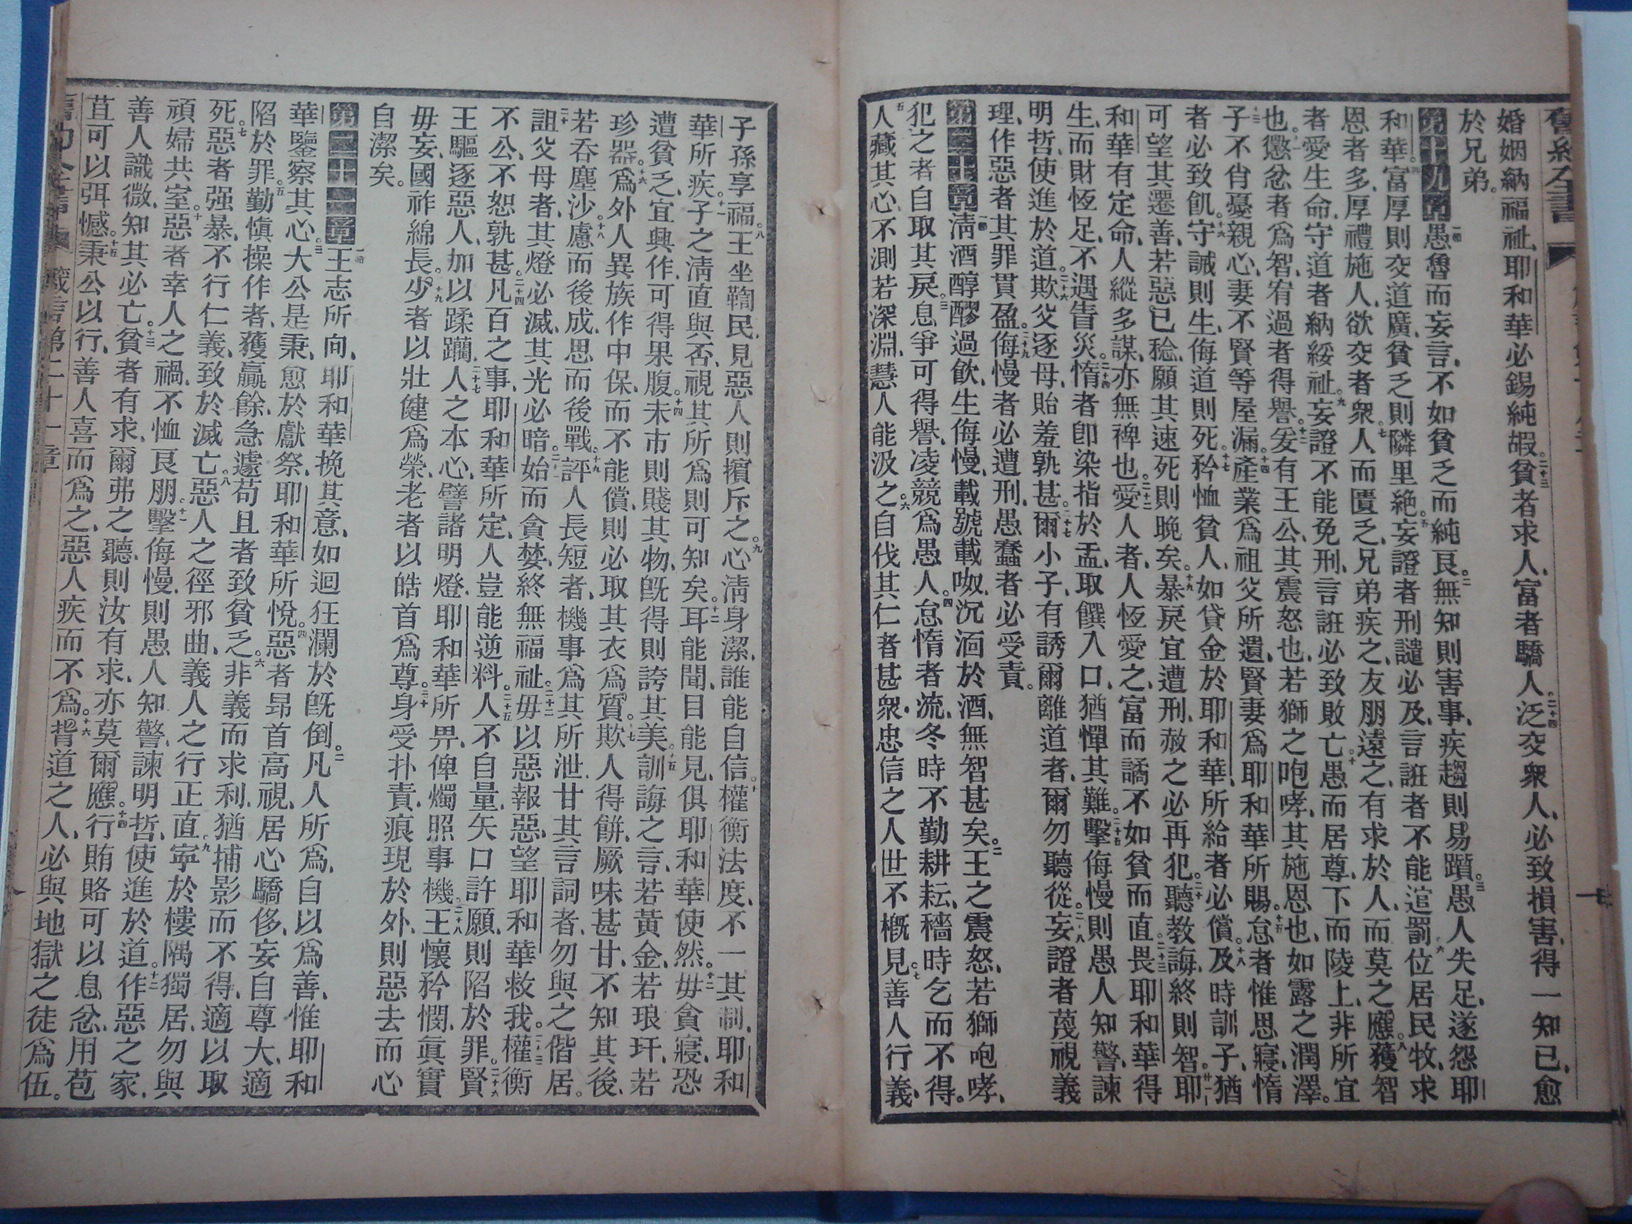 舊約全書
婚姻納福祉、耶和華必錫純嘏、二十三貧者求人、富者驕人、二十四泛交眾人、必致損害、得一知己、愈
於兄弟。
第十九章一節愚魯而妄言、不如貧乏而純良。二無知則害事、疾趨則易躓。三愚人失足、遂怨耶
和華。四富厚則交道廣、貧乏則隣里絕。五妄證者刑譴必及、言誑者不能逭罰。六位居民牧、求
恩者多、厚禮施人、欲交者眾。七人而匱乏、兄弟疾之、友朋遠之、有求於人、而莫之應。八獲智
者愛生命、守道者納綏祉。九妄證不能免刑、言誑必致敗亡。十愚而居尊、下而陵上、非所宜
也。十一懲忿者為智、宥過者得譽。十二爰有王公、其震怒也、若獅之咆哮、其施恩也、如露之潤澤。
十三子不肖憂親心、妻不賢等屋漏。十四產業為祖父所遺、賢妻為耶和華所賜。十五怠者惟思寢、惰
者必致飢。十六守誡則生、侮道則死。十七矜恤貧人、如貸金於耶和華、所給者必償。十八及時訓子、猶
可望其遷善、若惡已稔、願其速死則晚矣。十九暴戾宜遭刑、赦之必再犯。二十聽教誨、終則智。二十一耶
和華有定命、人縱多謀、亦無裨也。二十二愛人者、人恆愛之、富而譎、不如貧而直。二十三畏耶和華得
生、而財恆足、不遇眚災。二十四惰者卽染指於盂、取饌入口、猶憚其難。二十五擊侮慢、則愚人知警、諫
明哲、使進於道。二十六欺父逐母、貽羞孰甚。二十七爾小子、有誘爾離道者、爾勿聽從。二十八妄證者蔑視義
理、作惡者其罪貫盈。二十九侮慢者必遭刑、愚蠢者必受責。
第二十章一節淸酒醇醪、過飲生侮慢、載號載呶、沉湎於酒、無智甚矣。二王之震怒、若獅咆哮、
犯之者自取其戾。三息爭可得譽、凌競為愚人。四怠惰者流、冬時不勤耕耘、穡時乞而不得。
五人藏其心、不測若深淵、慧人能汲之。六自伐其仁者甚眾、忠信之人、世不概見。七善人行義、
子孫享福。八王坐鞫民、見惡人則擯斥之。九心淸身潔、誰能自信。十權衡法度、不一其制、耶和
華所疾。十一子之淸直與否、視其所為、則可知矣。十二耳能聞、目能見、俱耶和華使然。十三毋貪寢、恐
遭貧乏、宜興作、可得果腹。十四未市則賤其物、旣得則誇其美。十五訓誨之言、若黃金、若琅玕、若
珍器。十六為外人異族作中保、而不能償、則必取其衣為質。十七欺人得餅、厥味甚甘、不知其後、
若吞塵沙。十八慮而後成、思而後戰。十九評人長短者、機事為其所泄、甘其言詞者、勿與之偕居。
二十詛父母者、其燈必滅、其光必暗。二十一始而貪婪、終無福祉。二十二毋以惡報惡、望耶和華救我。二十三權衡
不公、不恕孰甚。二十四凡百之事、耶和華所定、人豈能逆料。二十五人不自量、矢口許願、則陷於罪。二十六賢
王驅逐惡人、加以蹂躪。二十七人之本心、譬諸明燈、耶和華所畀、俾燭照事機。二十八王懷矜憫、眞實
毋妄、國祚綿長。二十九少者以壯健為榮、老者以皓首為尊。三十身受扑責、痕現於外、則惡去而心
自潔矣。
第二十一章一節王志所向、耶和華挽其意、如迴狂瀾於旣倒。二凡人所為、自以為善、惟耶和
華鑒察其心。三大公是秉、愈於獻祭、耶和華所悅。四惡者昂首高視、居心驕侈、妄自尊大、適
陷於罪。五勤愼操作者、獲贏餘、急遽苟且者、致貧乏。六非義而求利、猶捕影而不得、適以取
死。七惡者强暴、不行仁義、致於滅亡。八惡人之徑邪曲、義人之行正直。九寧於樓隅獨居、勿與
頑婦共室。十惡者幸人之禍、不恤良朋。十一擊侮慢、則愚人知警、諫明哲、使進於道。十二作惡之家、
善人識微、知其必亡。十三貧者有求、爾弗之聽、則汝有求、亦莫爾應。十四行賄賂可以息忿、用苞
苴可以弭憾。十五秉公以行、善人喜而為之、惡人疾而不為。十六背道之人、必與地獄之徒為伍。
舊約全書 箴言第二十一章